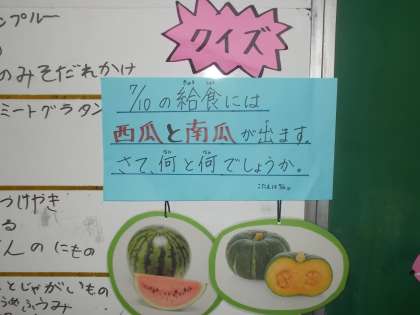 ンプルー
のみそだれかけ
ミートグラタン
つけやき
る
んのにもの
とじゃがいもの
クイズ
7/10の給食には
きゅうしょく
西瓜と南瓜が出ます。
さて、何と何でしょうか。
なん
なん